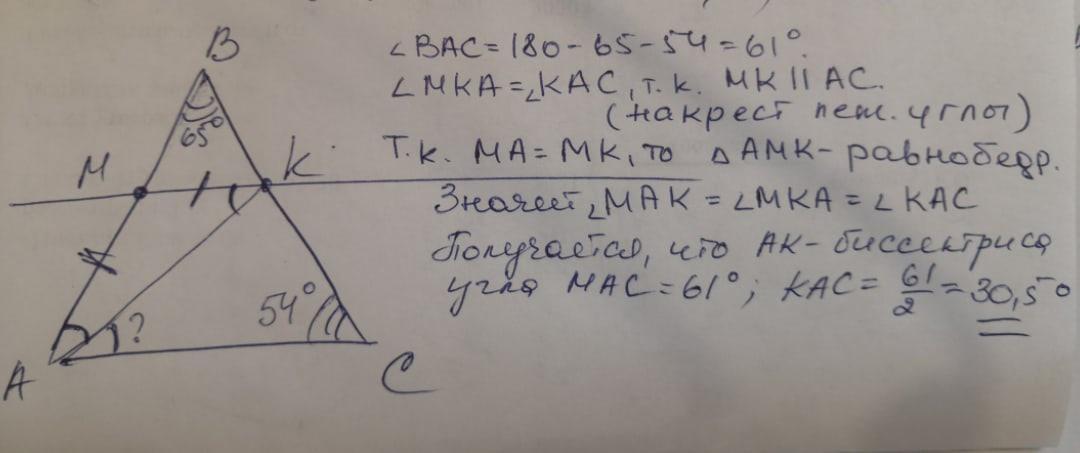 ∠BAC = 180 - 65 - 54 = 61°.
∠MKA = ∠KAC, т.к. MK || AC.
(накрест леж. углы)
Т.к. MA = MK, то △AMK - равнобедр.
Значит, ∠MAK = ∠MKA = ∠KAC
Получается, что AK - биссектриса
угла MAC = 61°; KAC = 61/2 = 30,5°
B
65°
M
K
54°
?
A
C